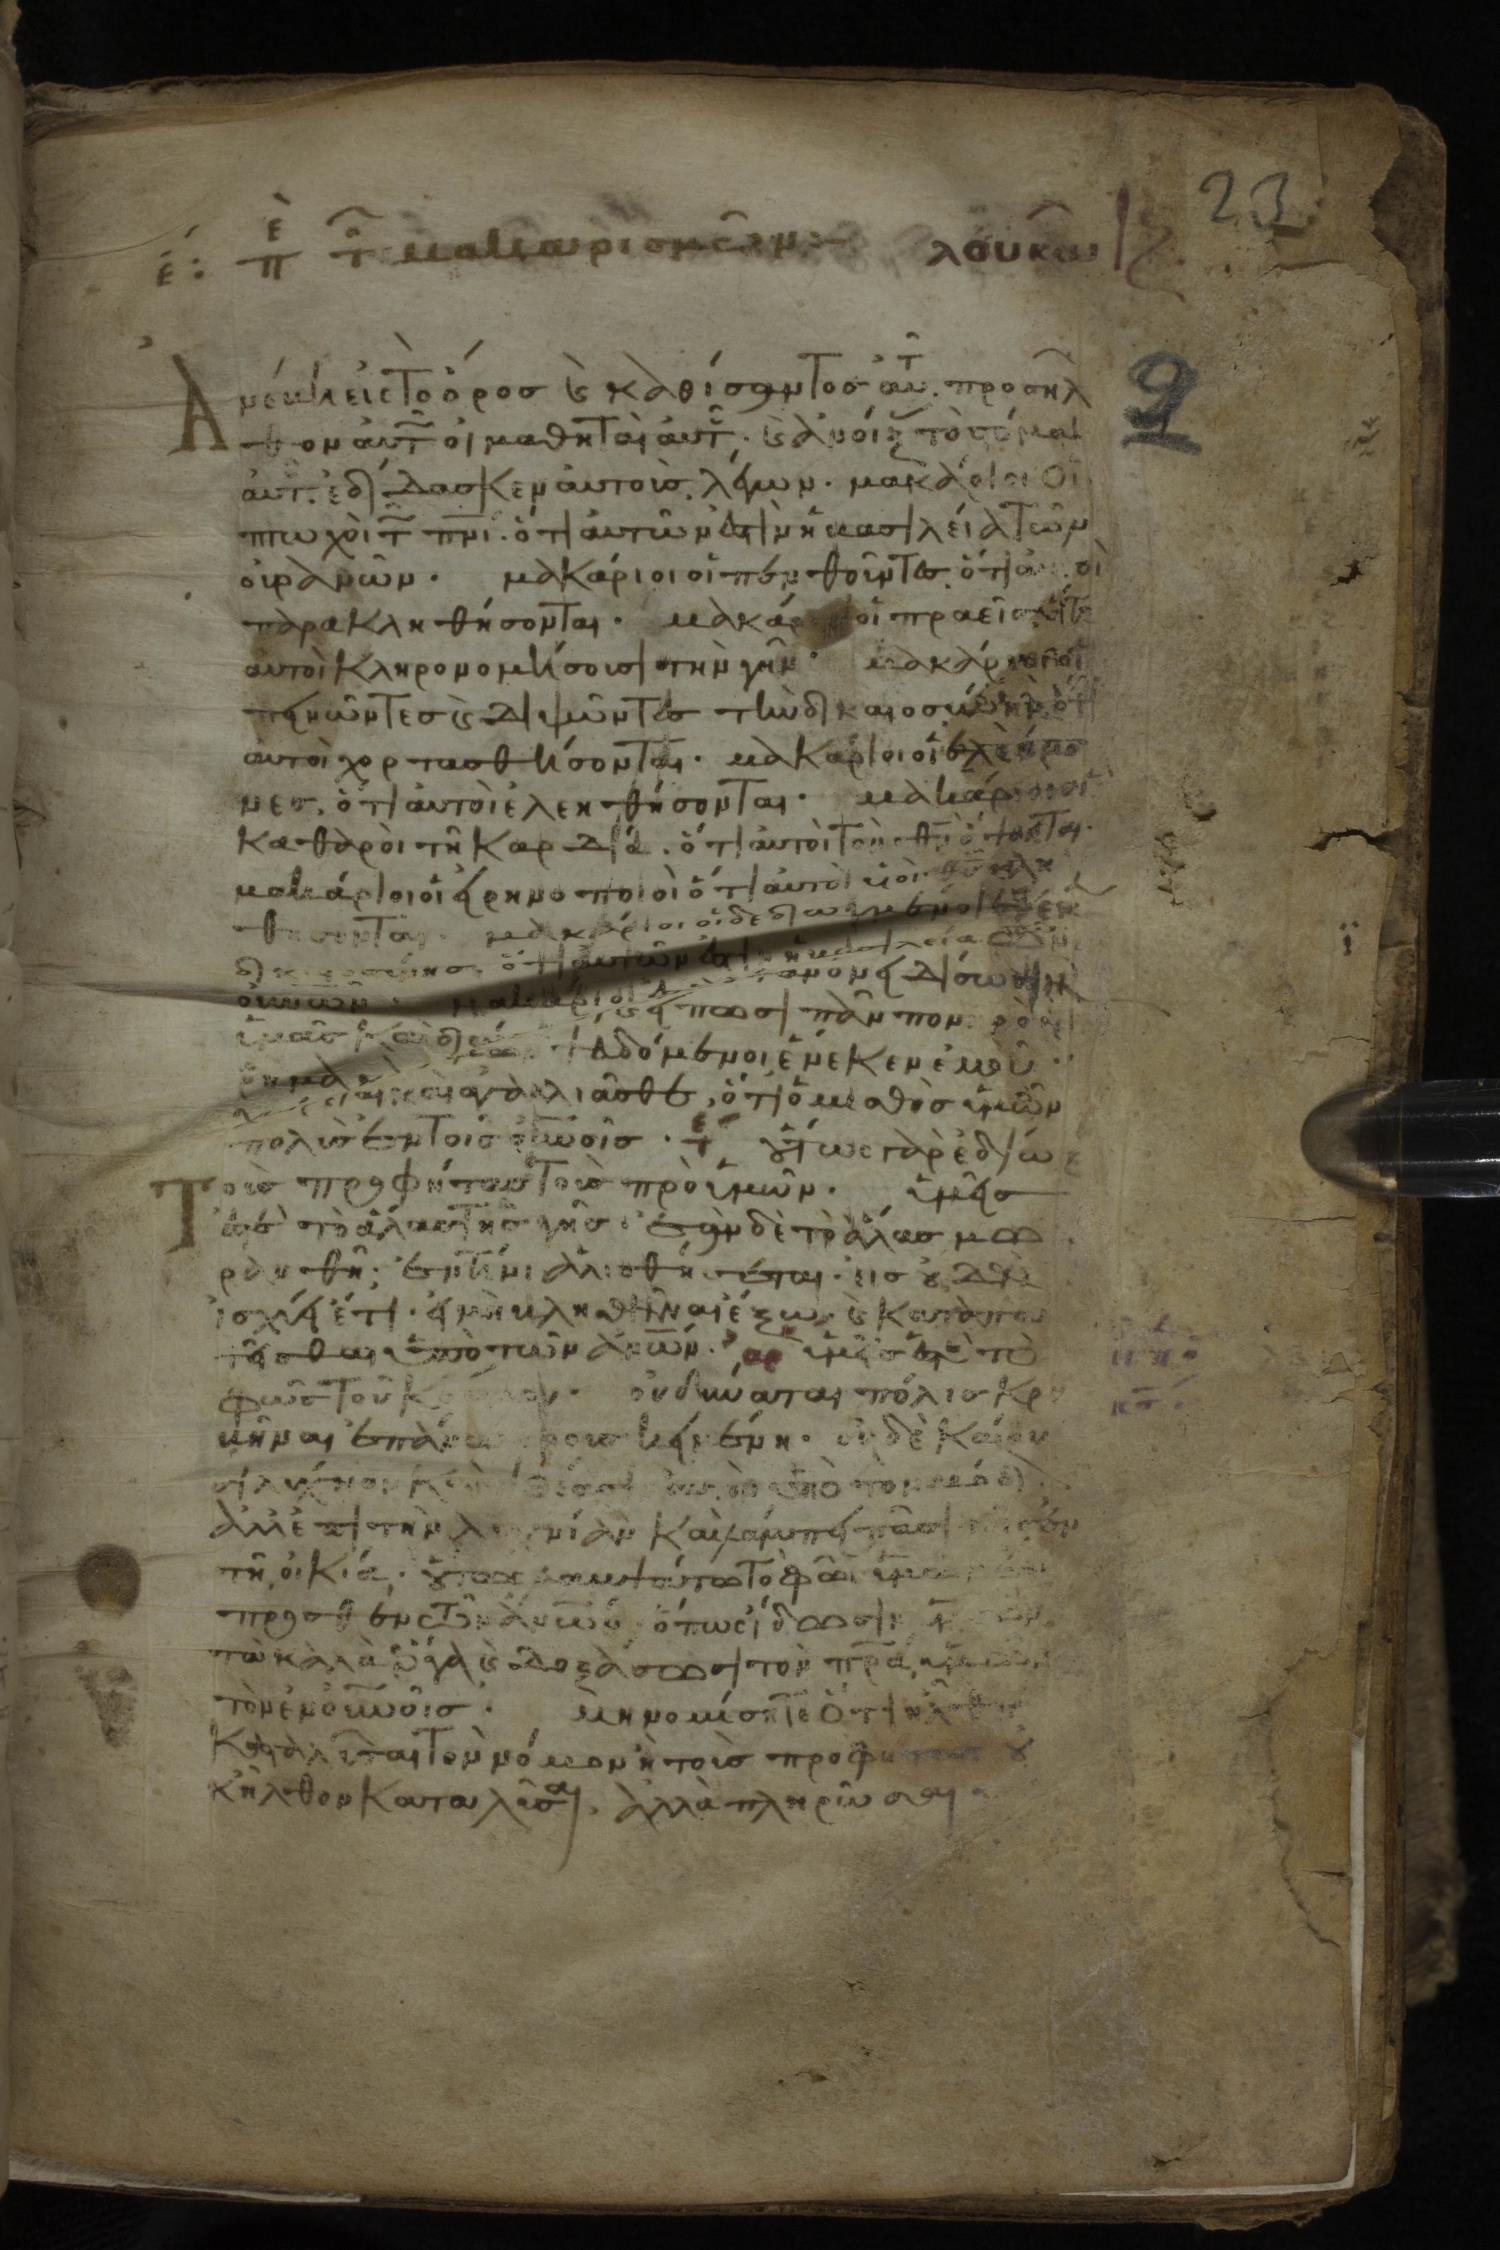 23
ε΄: ε π τ μακαρισμῶν:– λουκᾶν ζ
Ἀνέβη εἰς τὸ ὄρος καὶ καθίσαντος αὐτ. προσῆλ
θον αὐτ οἱ μαθηταὶ αὐτ. καὶ ἀνοίξ τὸ στόμα
αὐτ. ἐδίδασκεν αὐτοὺς λέγων. μακάριοι οἱ
πτωχοὶ τ πνι. ὅτι αὐτῶν ἐστιν ἡ βασιλεία τῶν
οὐρανῶν. μακάριοι οἱ πενθοῦντες ὅτι αὐτοὶ
παρακληθήσονται. μακάριοι οἱ πραεῖς. ὅτι
αὐτοὶ κληρονομήσουσι τὴν γῆν. μακάριοι οἱ
πεινῶντες καὶ διψῶντες τὴν δικαιοσύνην ὅτι
αὐτοὶ χορτασθήσονται. μακάριοι οἱ ἐλεήμο
νες. ὅτι αὐτοὶ ἐλεηθήσονται. μακάριοι οἱ
καθαροὶ τῆ καρδία. ὅτι αὐτοὶ τὸν θν ὄψονται.
μακάριοι οἱ εἰρηνοποιοὶ ὅτι αὐτοὶ υἱοὶ θυ κλη
θήσονται. μακάριοι οἱ δεδιωγμένοι ἕνεκ
δικαιοσύνης. ὅτι αὐτῶν ἐστιν ἡ βασιλεία τῶν
οὐνῶν. μακάριοί ὀνειδίσωσιν
ὑμᾶς καὶ διώ καὶ εἴπωσι πᾶν πονηρὸν
ψευδόμενοι ἕνεκεν ἐμοῦ.
καὶ ἀγαλλιᾶσθε, ὅτι ὁ μισθὸς ὑμῶν
πολὺς ἐν τοῖς οὐνοῖς. τ οὕτως γὰρ ἐδίω
Τοὺς προφήτας τοὺς πρὸ ὑμῶν. ὑμεῖς
ἐστὲ τὸ ἅλας τῆς γῆς. ἐὰν δὲ τὸ ἅλας μω
ρανθῆ. ἐν τίνι ἁλισθήσεται. εἰς οὐδὲν
ἰσχύει ἔτι. εἰ μὴ βληθῆναι ἔξω, καὶ καταπα
τεῖσθαι ὑπὸ τῶν ἀνων. αρ ὑμεῖς ἐστὲ τὸ
φῶς τοῦ κόσμου. οὐ δύναται πόλις κρυ
βῆναι ἐπάνω ὄρους κειμένη. οὐδὲ καίου
σι λύχνον καὶ τιθέασιν αὐτὸν ὑπὸ τὸν μόδι
ἀλλ᾽ ἐπὶ τὴν λυχνίαν καὶ λάμπει πᾶσι τοῖς ἐν
τῆ οἰκία. οὕτως λαμψάτω τὸ φῶς ὑμῶν
προσθεν τῶν ἀνων ὅπως ἴδωσιν ὑμῶν
τὰ καλὰ ἔργα καὶ δοξάσωσι τὸν πρα ὑμῶν
τὸν ἐν οὐνοῖς. μὴ νομίσητε ὅτι ἦλθον
καταλῦσαι τὸν νόμον ἢ τοὺς προφήτας οὐ
κ ἦλθον καταλῦσαι. ἀλλὰ πληρῶσαι.